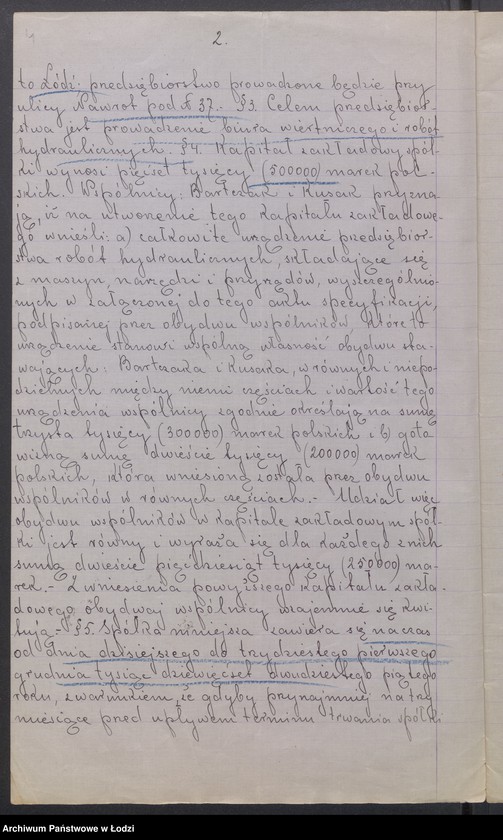 2.
to Łódź. przedsiębiorstwo prowadzone będzie przy
ulicy Nawrot pod № 37. - §3. Celem przedsiębior-
stwa jest prowadzenie biura wiertniczego i robót
hydraulicznych. §4. Kapitał zakładowy spół-
ki wynosi pięćset tysięcy (500000) marek pol-
skich. Wspólnicy: Bartczak i Kusak przyzna-
ją, iż na utworzenie tego kapitału zakładowe-
go wnieśli: a) całkowite urządzenie przedsiębior-
stwa robót hydraulicznych, składające się
z maszyn, narzędzi i przyrządów, wyszczególnio-
nych w załączonej do tego aktu specyfikacji,
podpisanej przez obydwu wspólników, które to
urządzenie stanowi wspólną własność obydwu sta-
wających: Bartczaka i Kusaka, w równych i niepo-
dzielnych między niemi częściach i wartość tego
urządzenia wspólnicy zgodnie określają na sumę
trzysta tysięcy (300000) marek polskich i b) goto
wizną sumę dwieście tysięcy (200000) marek
polskich, która wniesioną została przez obydwu
wspólników w równych częściach. - Udział więc
obydwu wspólników w kapitale zakładowym spół-
ki jest równy i wyraża się dla każdego z nich
sumą dwieście pięćdziesiąt tysięcy (250000) ma-
rek. - Z wniesienia powyższego kapitału zakła-
dowego obydwaj wspólnicy wzajemnie się kwi-
tują. - §5. Spółka niniejsza zawiera się na czas
od dnia dzisiejszego do trzydziestego pierwszego
grudnia tysiąc dziewięćset dwudziestego piątego
roku, z warunkiem, że gdyby przynajmniej na trzy
miesiące przed upływem terminu trwania spółki
Archiwum Państwowe w Łodzi